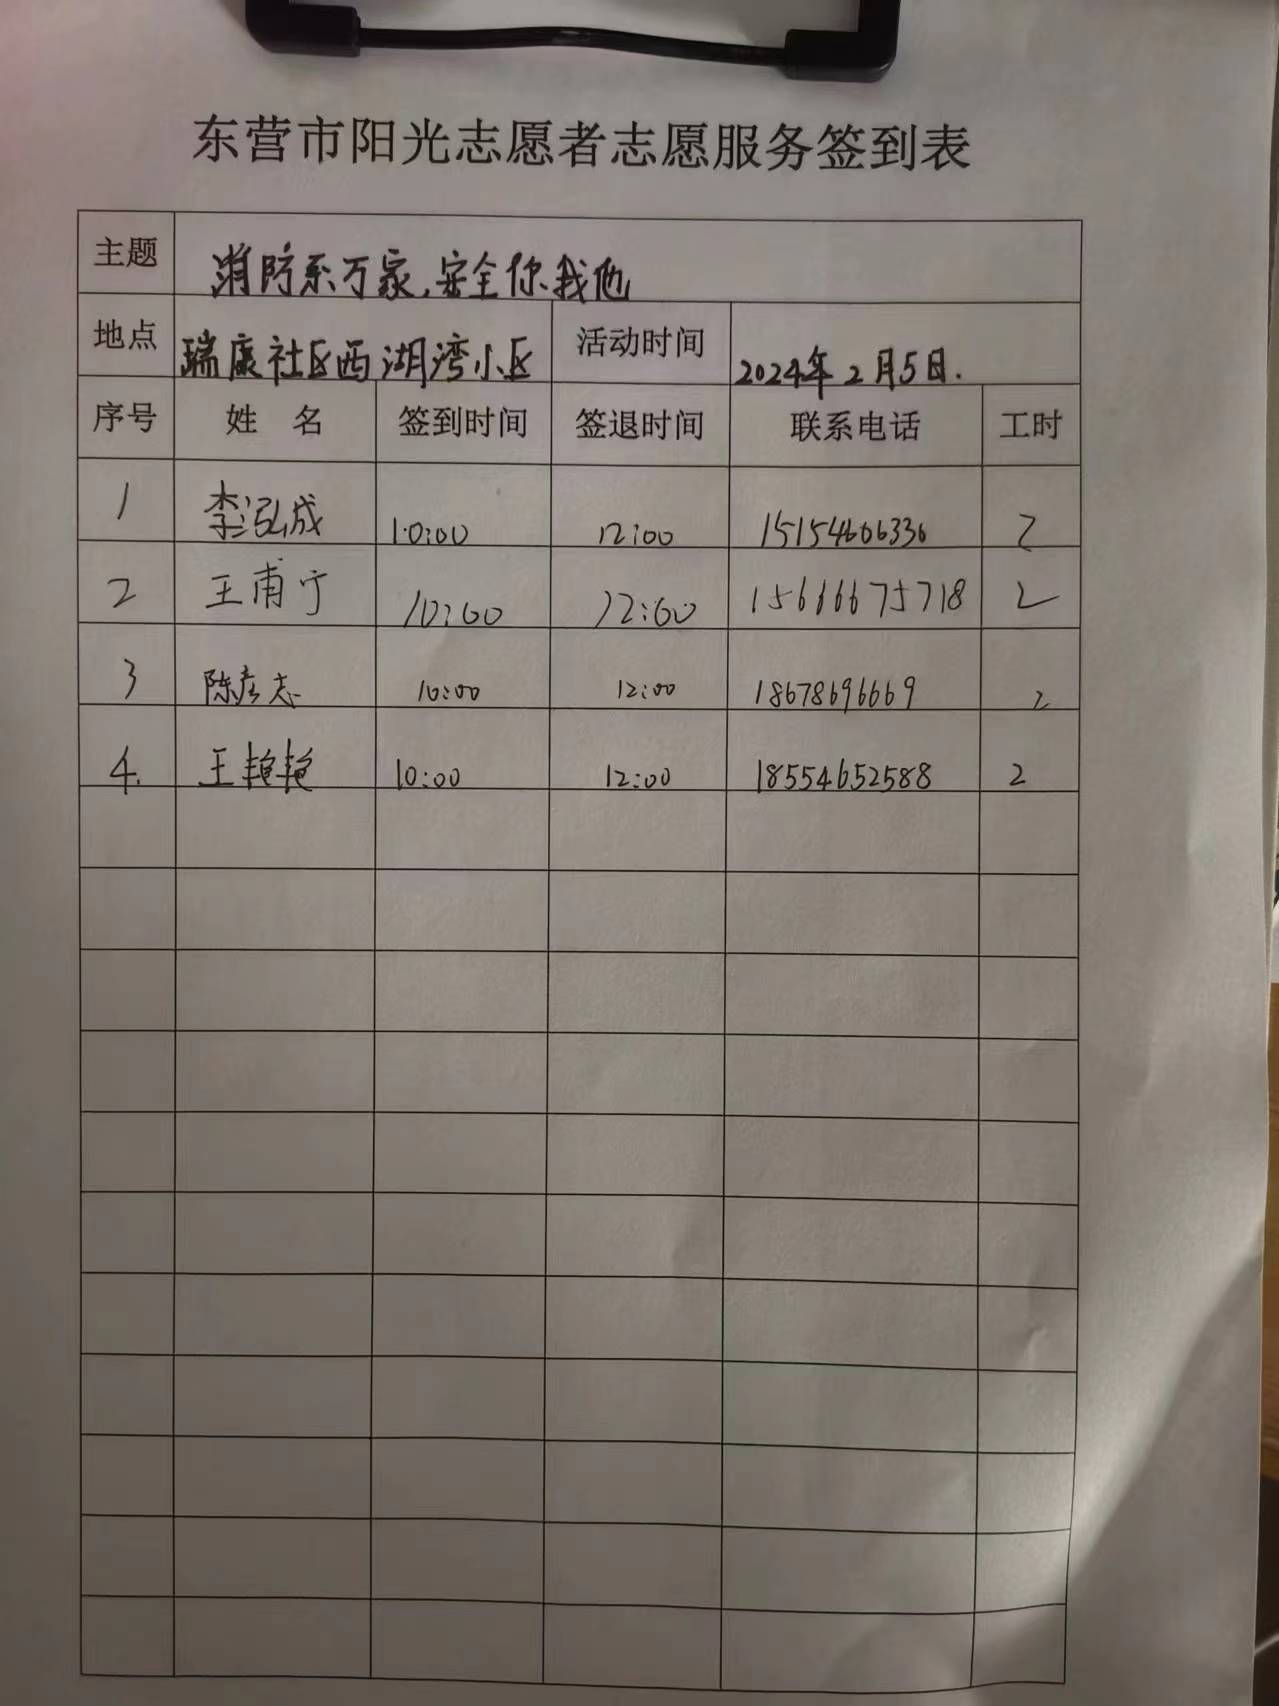 东营市阳光志愿者志愿服务签到表
主题 消防系万家,安全你我他
地点 瑞康社区西湖湾小区 活动时间 2024年2月5日.
序号 姓 名 签到时间 签退时间 联系电话 工时
1 李泓成 10:00 12:00 15154606336 2
2 王甫宁 10:00 12:00 15666675718 2
3 陈彦志 10:00 12:00 18678696669 2
4. 王艳艳 10:00 12:00 18554652588 2